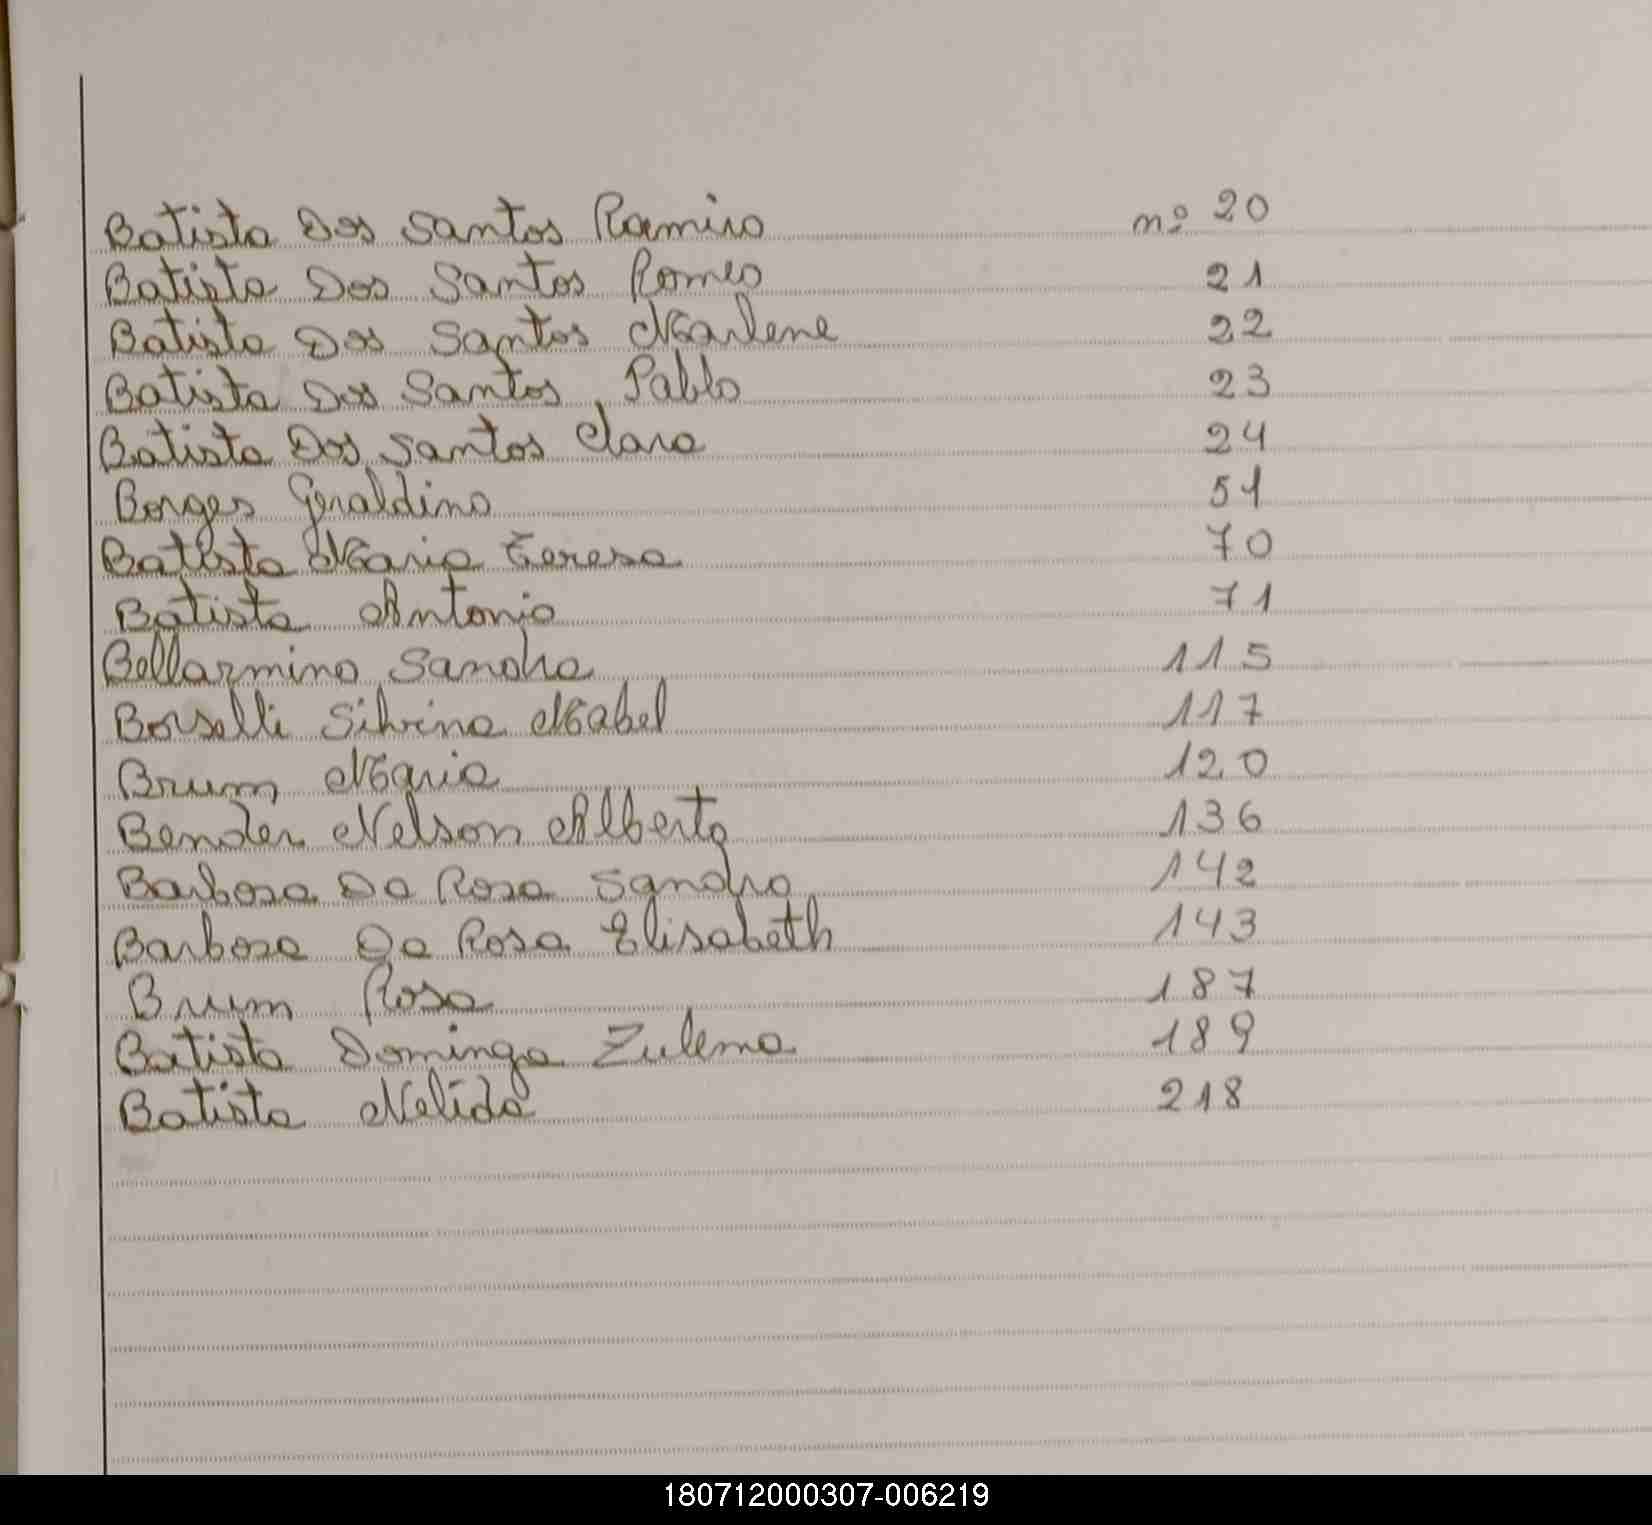 Batista Dos Santos Ramiro nº 20
Batista Dos Santos Romeo 21
Batista Dos Santos Marlene 22
Batista Dos Santos Pablo 23
Batista Dos Santos Clara 24
Borges Geraldino 51
Batista Maria Teresa 70
Batista Antonio 71
Bellarmino Sandra 115
Borselli Silvina Mabel 117
Brum Maria 120
Bender Nelson Alberto 136
Barbosa Da Rosa Sandra 142
Barbosa Da Rosa Elisabeth 143
Brum Rosa 187
Batista Dominga Zulema 189
Batista Nelida 218
180712000307-006219